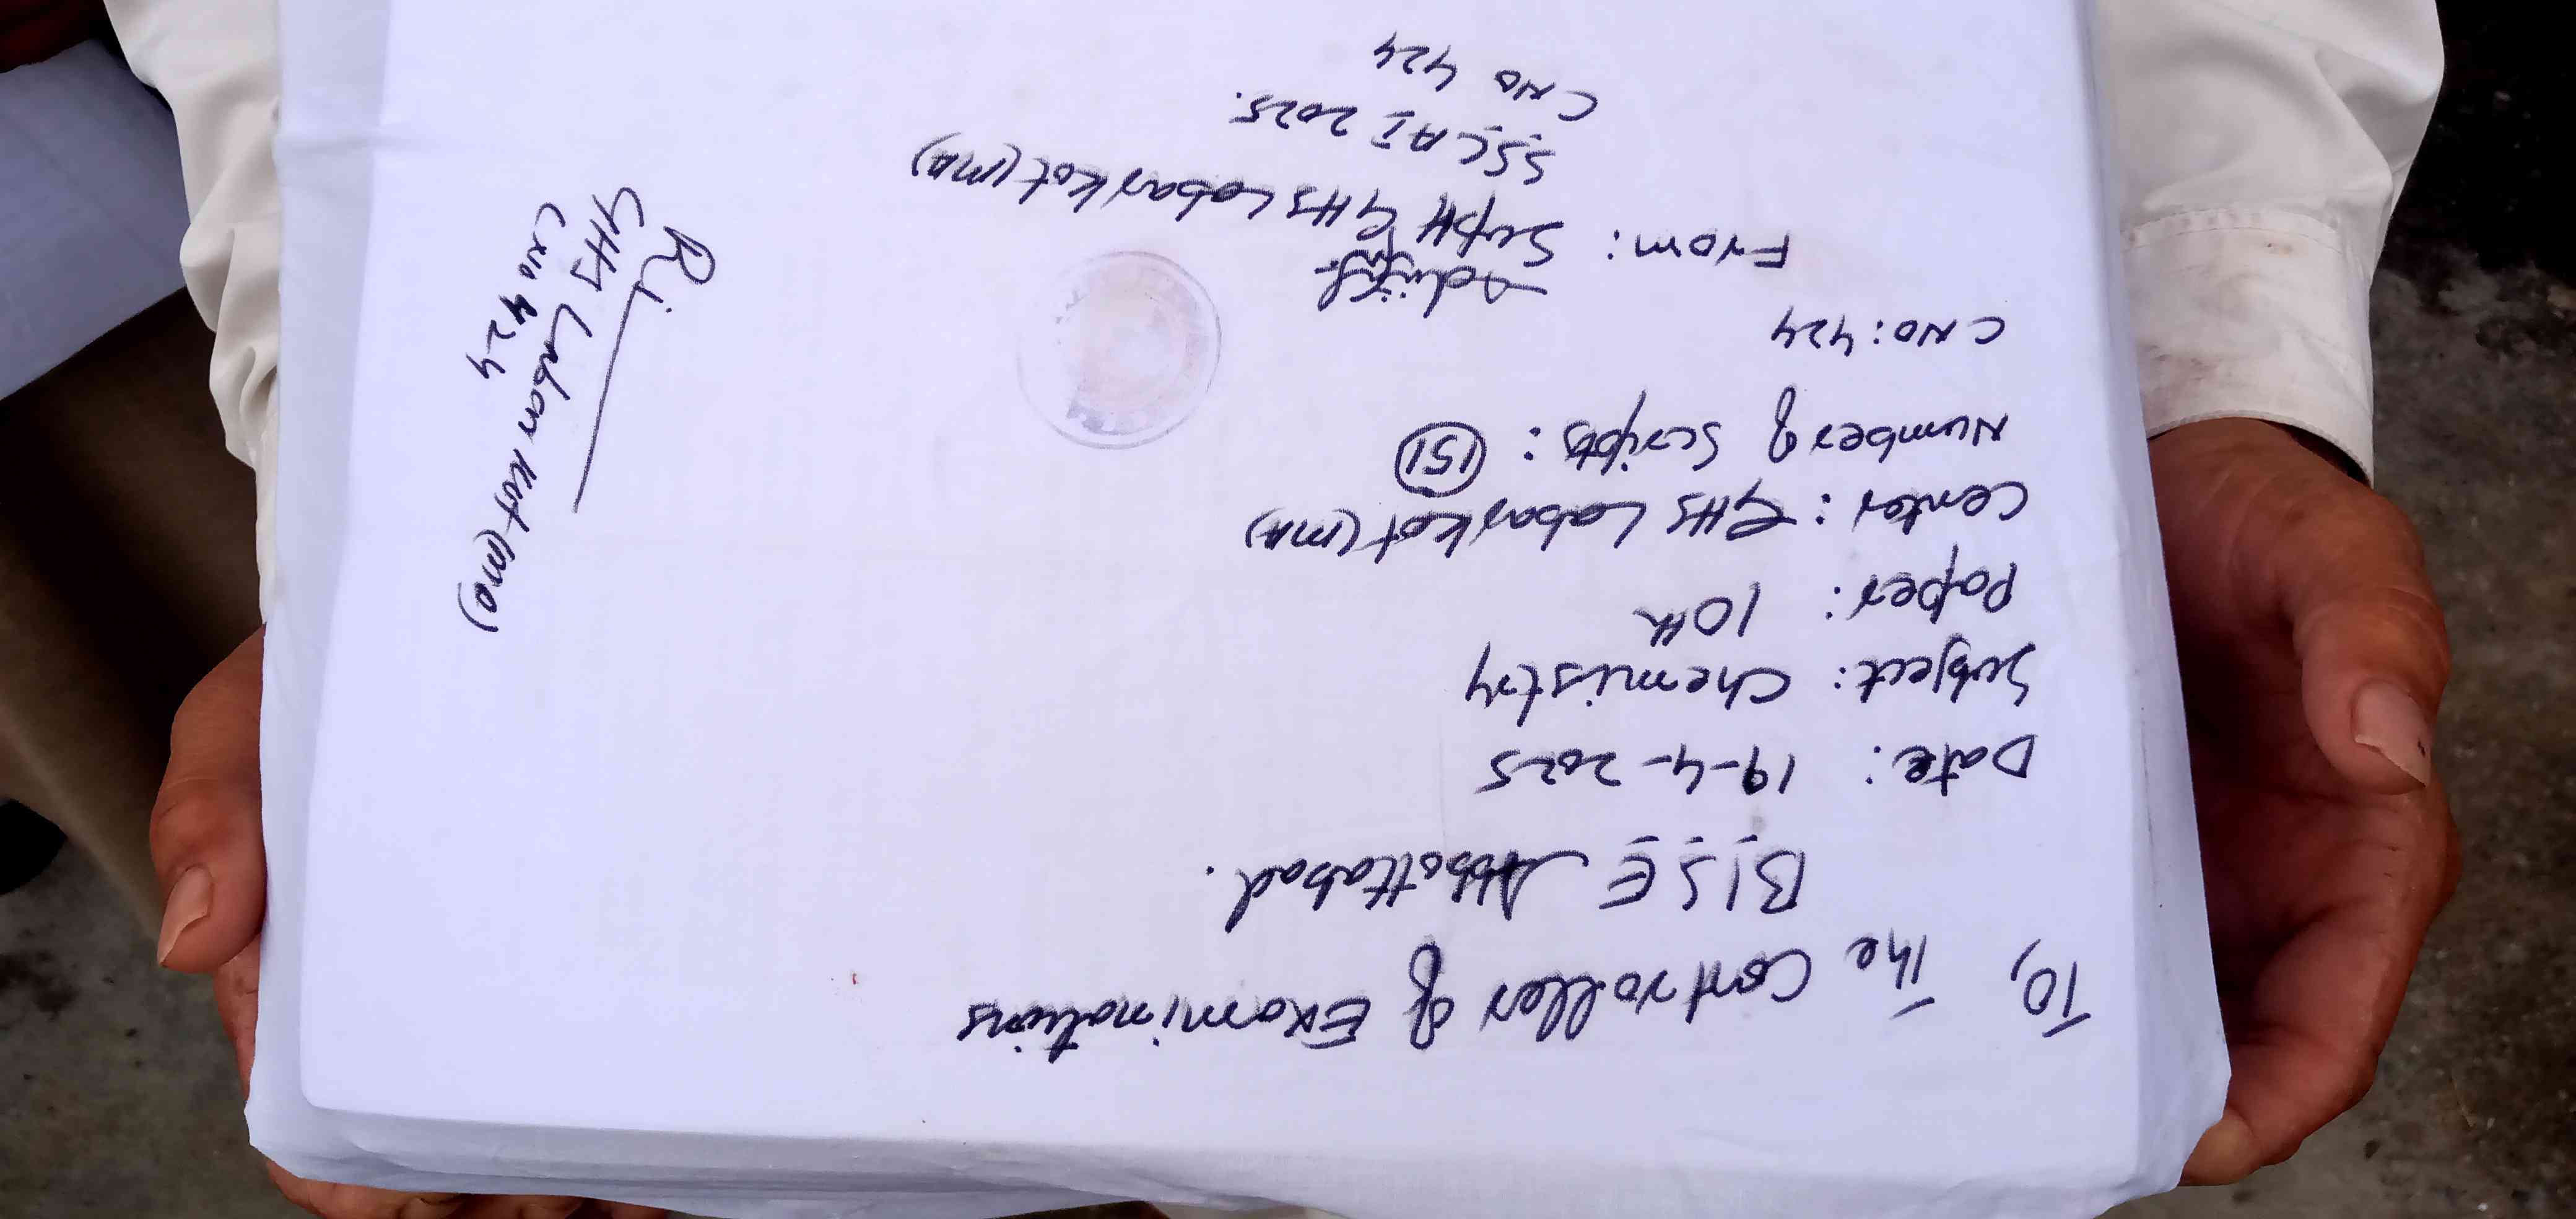 To, The Controller of Examinations
B.I.S.E Abbottabad.
Date: 19-4-2025
Subject: Chemistry
Paper: 10th
Center: GHS Labarkot (MA)
Number of Scripts: 151
C NO: 424
From: Supdt GHS Labarkot (MA)
SSC AI 2025.
C NO 424
Ri
GHS Labarkot (MA)
C NO 424